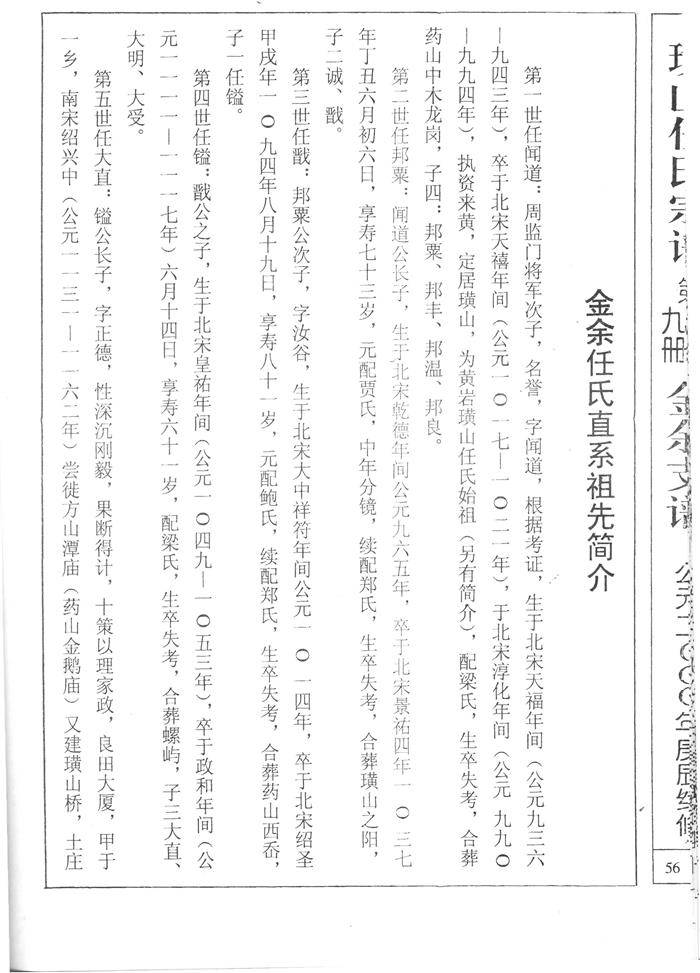 璜山任氏宗谱 第九册 金余支谱 公元二〇〇〇年庚辰续修
56
金余任氏直系祖先简介
第一世任闻道：周监门将军次子，名誉，字闻道，根据考证，生于北宋天福年间（公元九三六
—九四三年），卒于北宋天禧年间（公元一〇一七—一〇二一年），于北宋淳化年间（公元 九九〇
—九九四年），执资来黄，定居璜山，为黄岩璜山任氏始祖（另有简介），配梁氏，生卒失考，合葬
药山中木龙岗，子四：邦粟、邦丰、邦温、邦良。
第二世任邦粟：闻道公长子，生于北宋乾德年间公元九六五年，卒于北宋景祐四年一〇三七
年丁丑六月初六日，享寿七十三岁，元配贾氏，中年分镜，续配郑氏，生卒失考，合葬璜山之阳，
子二诚、戬。
第三世任戬：邦粟公次子，字汝谷，生于北宋大中祥符年间公元一〇一四年，卒于北宋绍圣
甲戌年一〇九四年八月十九日，享寿八十一岁，元配鲍氏，续配郑氏，生卒失考，合葬药山西岙，
子一任镒。
第四世任镒：戬公之子，生于北宋皇祐年间（公元一〇四九—一〇五三年），卒于政和年间（公
元一一一一—一一一七年）六月十四日，享寿六十一岁，配梁氏，生卒失考，合葬螺屿，子三大直、
大明、大受。
第五世任大直：镒公长子，字正德，性深沉刚毅，果断得计，十策以理家政，良田大厦，甲于
一乡，南宋绍兴中（公元一一三一—一一六二年）尝徙方山潭庙（药山金鹅庙）又建璜山桥，土庄